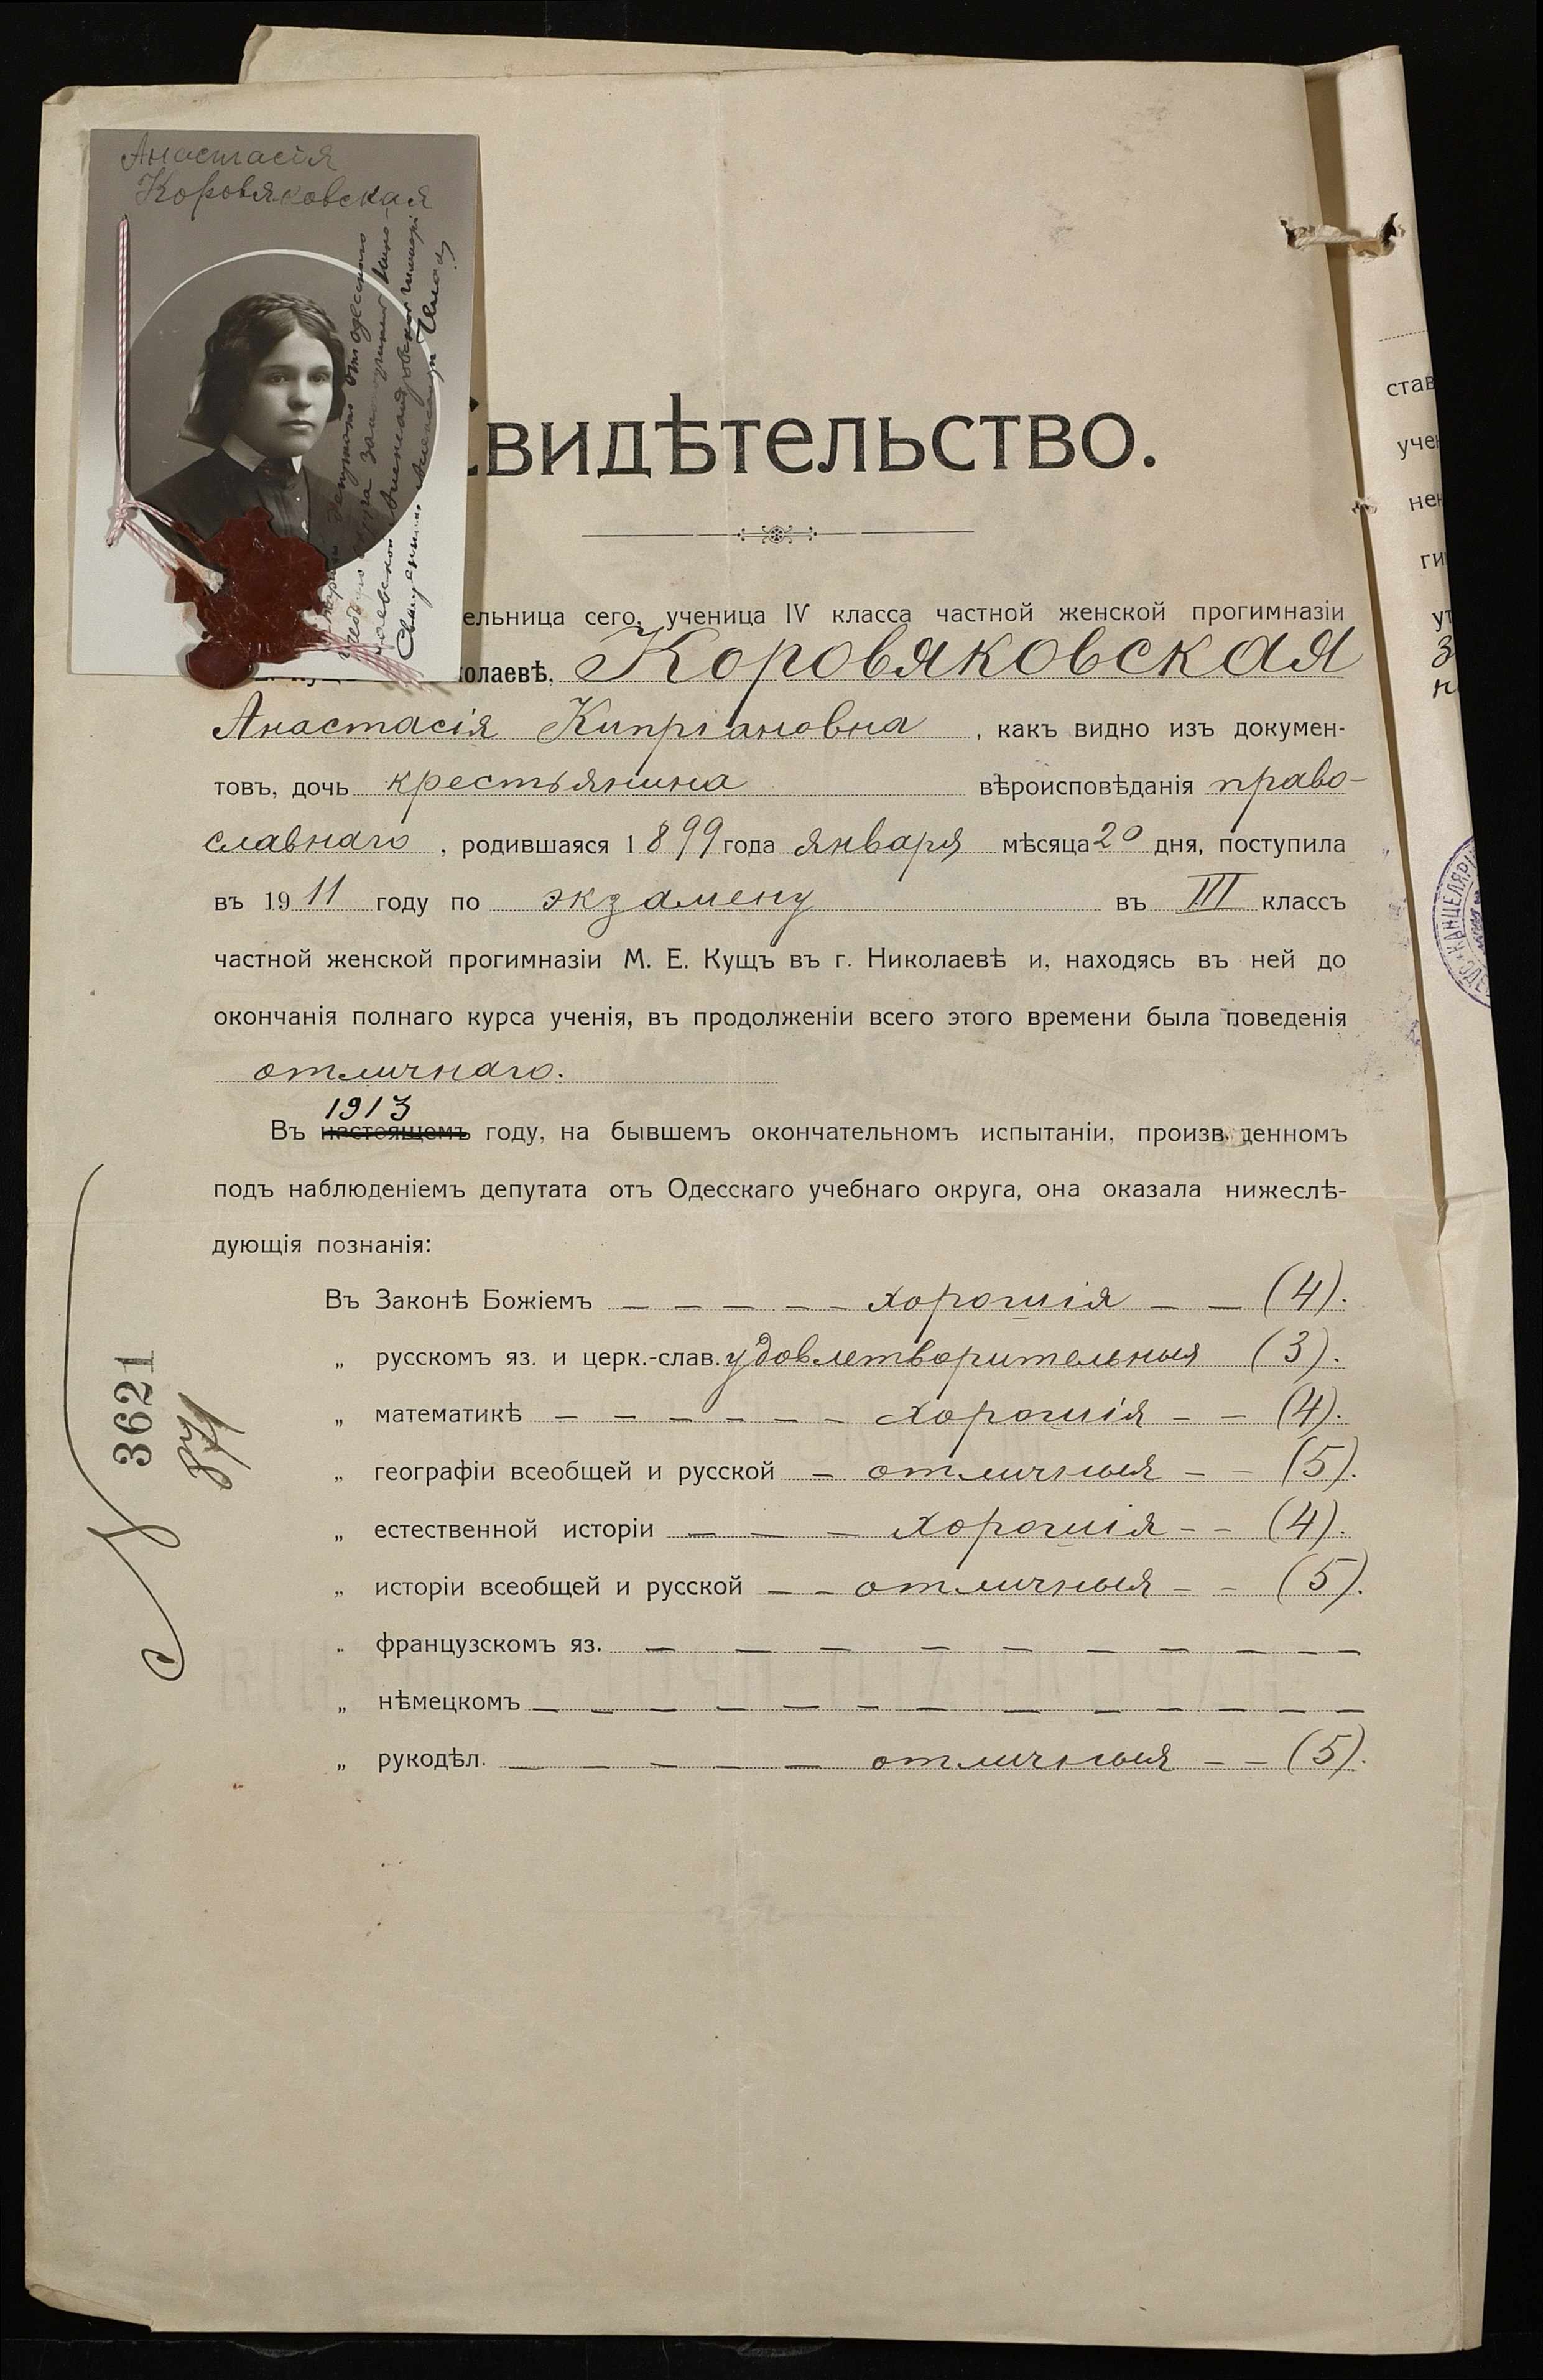 Анастасія
Коровяковская
депутатъ отъ Одесскаго
Свидѣтельство.
ельница сего, ученица IV класса частной женской прогимназіи
колаевѣ, Коровяковская
Анастасія Кипріановна, какъ видно изъ докумен-
товъ, дочь крестьянина вѣроисповѣданія право-
славнаго, родившаяся 1899 года января мѣсяца 20 дня, поступила
въ 1911 году по экзамену въ III классъ
частной женской прогимназіи М. Е. Кущъ въ г. Николаевѣ и, находясь въ ней до
окончанія полнаго курса ученія, въ продолженіи всего этого времени была поведенія
отличнаго.
1913
Въ настоящемъ году, на бывшемъ окончательномъ испытаніи, произв денномъ
подъ наблюденіемъ депутата отъ Одесскаго учебнаго округа, она оказала нижеслѣ-
дующія познанія:
Въ Законѣ Божіемъ — — — — — хорошія — — (4).
„ русскомъ яз. и церк.-слав. удовлетворительныя (3).
„ математикѣ — — — — — — хорошія — — (4).
„ географіи всеобщей и русской — отличныя — — (5).
„ естественной исторіи — — — хорошія — — (4).
„ исторіи всеобщей и русской — — отличныя — — (5).
„ французскомъ яз. — — — — — — — — — —
„ нѣмецкомъ — — — — — — — — — — — —
„ рукодѣл. — — — — — отличныя — — (5).
№ 3621
став
учен
нен
ги
ут
КАНЦЕЛЯРІ